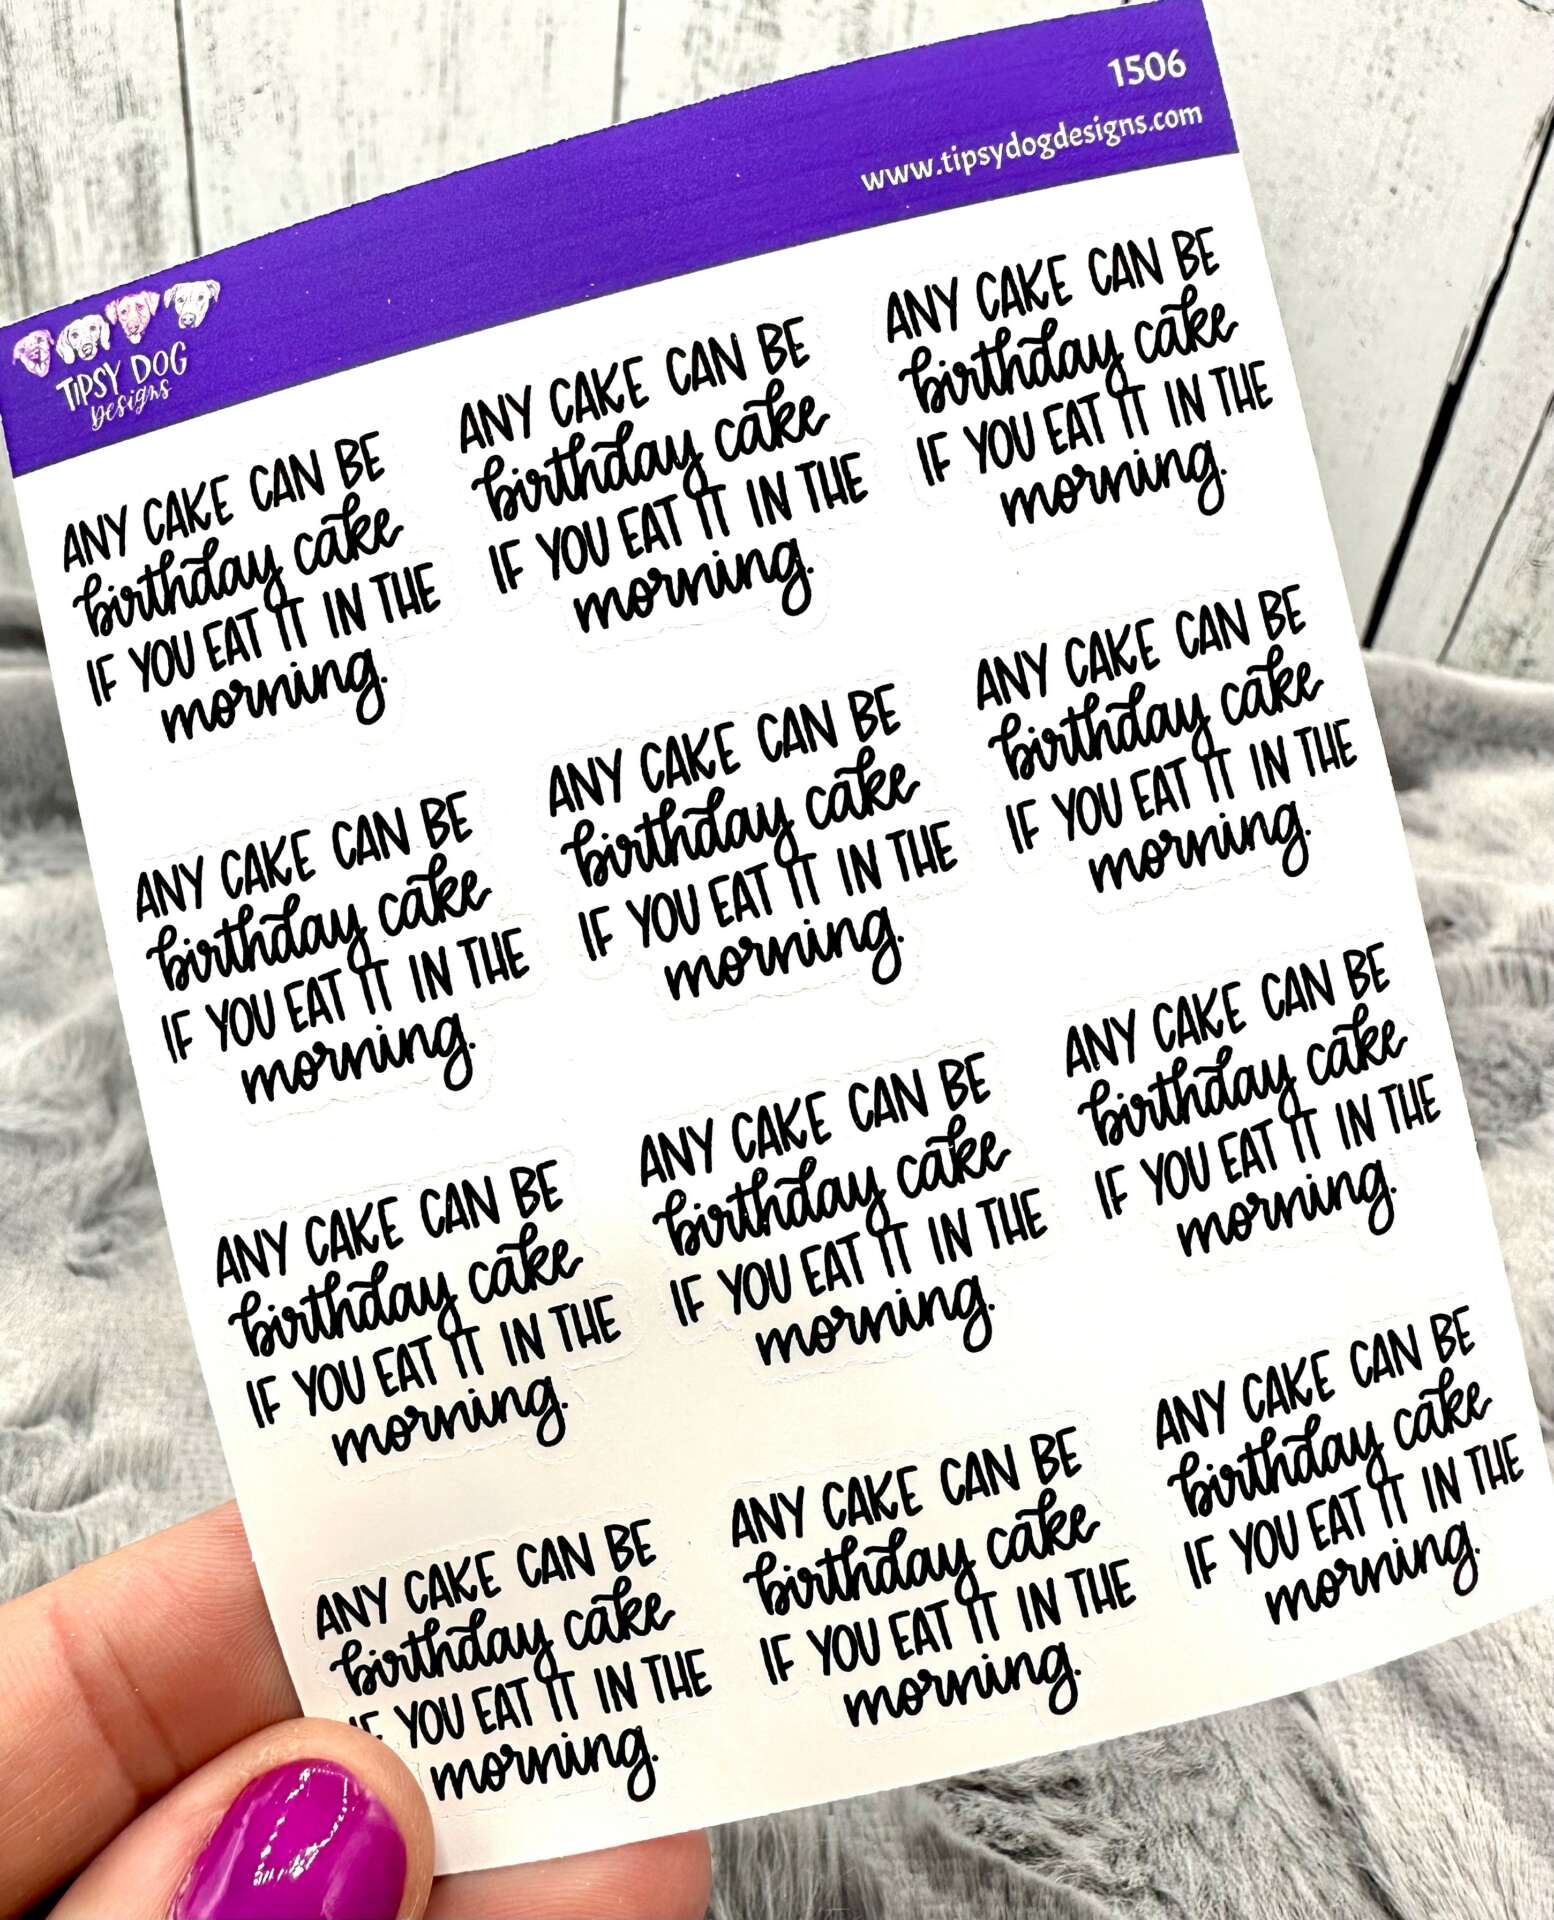 1506
www.tipsydogdesigns.com
TIPSY DOG
Designs
ANY CAKE CAN BE
birthday cake
IF YOU EAT IT IN THE
morning.
ANY CAKE CAN BE
birthday cake
IF YOU EAT IT IN THE
morning.
ANY CAKE CAN BE
birthday cake
IF YOU EAT IT IN THE
morning.
ANY CAKE CAN BE
birthday cake
IF YOU EAT IT IN THE
morning.
ANY CAKE CAN BE
birthday cake
IF YOU EAT IT IN THE
morning.
ANY CAKE CAN BE
birthday cake
IF YOU EAT IT IN THE
morning.
ANY CAKE CAN BE
birthday cake
IF YOU EAT IT IN THE
morning.
ANY CAKE CAN BE
birthday cake
IF YOU EAT IT IN THE
morning.
ANY CAKE CAN BE
birthday cake
IF YOU EAT IT IN THE
morning.
ANY CAKE CAN BE
birthday cake
IF YOU EAT IT IN THE
morning.
ANY CAKE CAN BE
birthday cake
IF YOU EAT IT IN THE
morning.
ANY CAKE CAN BE
birthday cake
IF YOU EAT IT IN THE
morning.